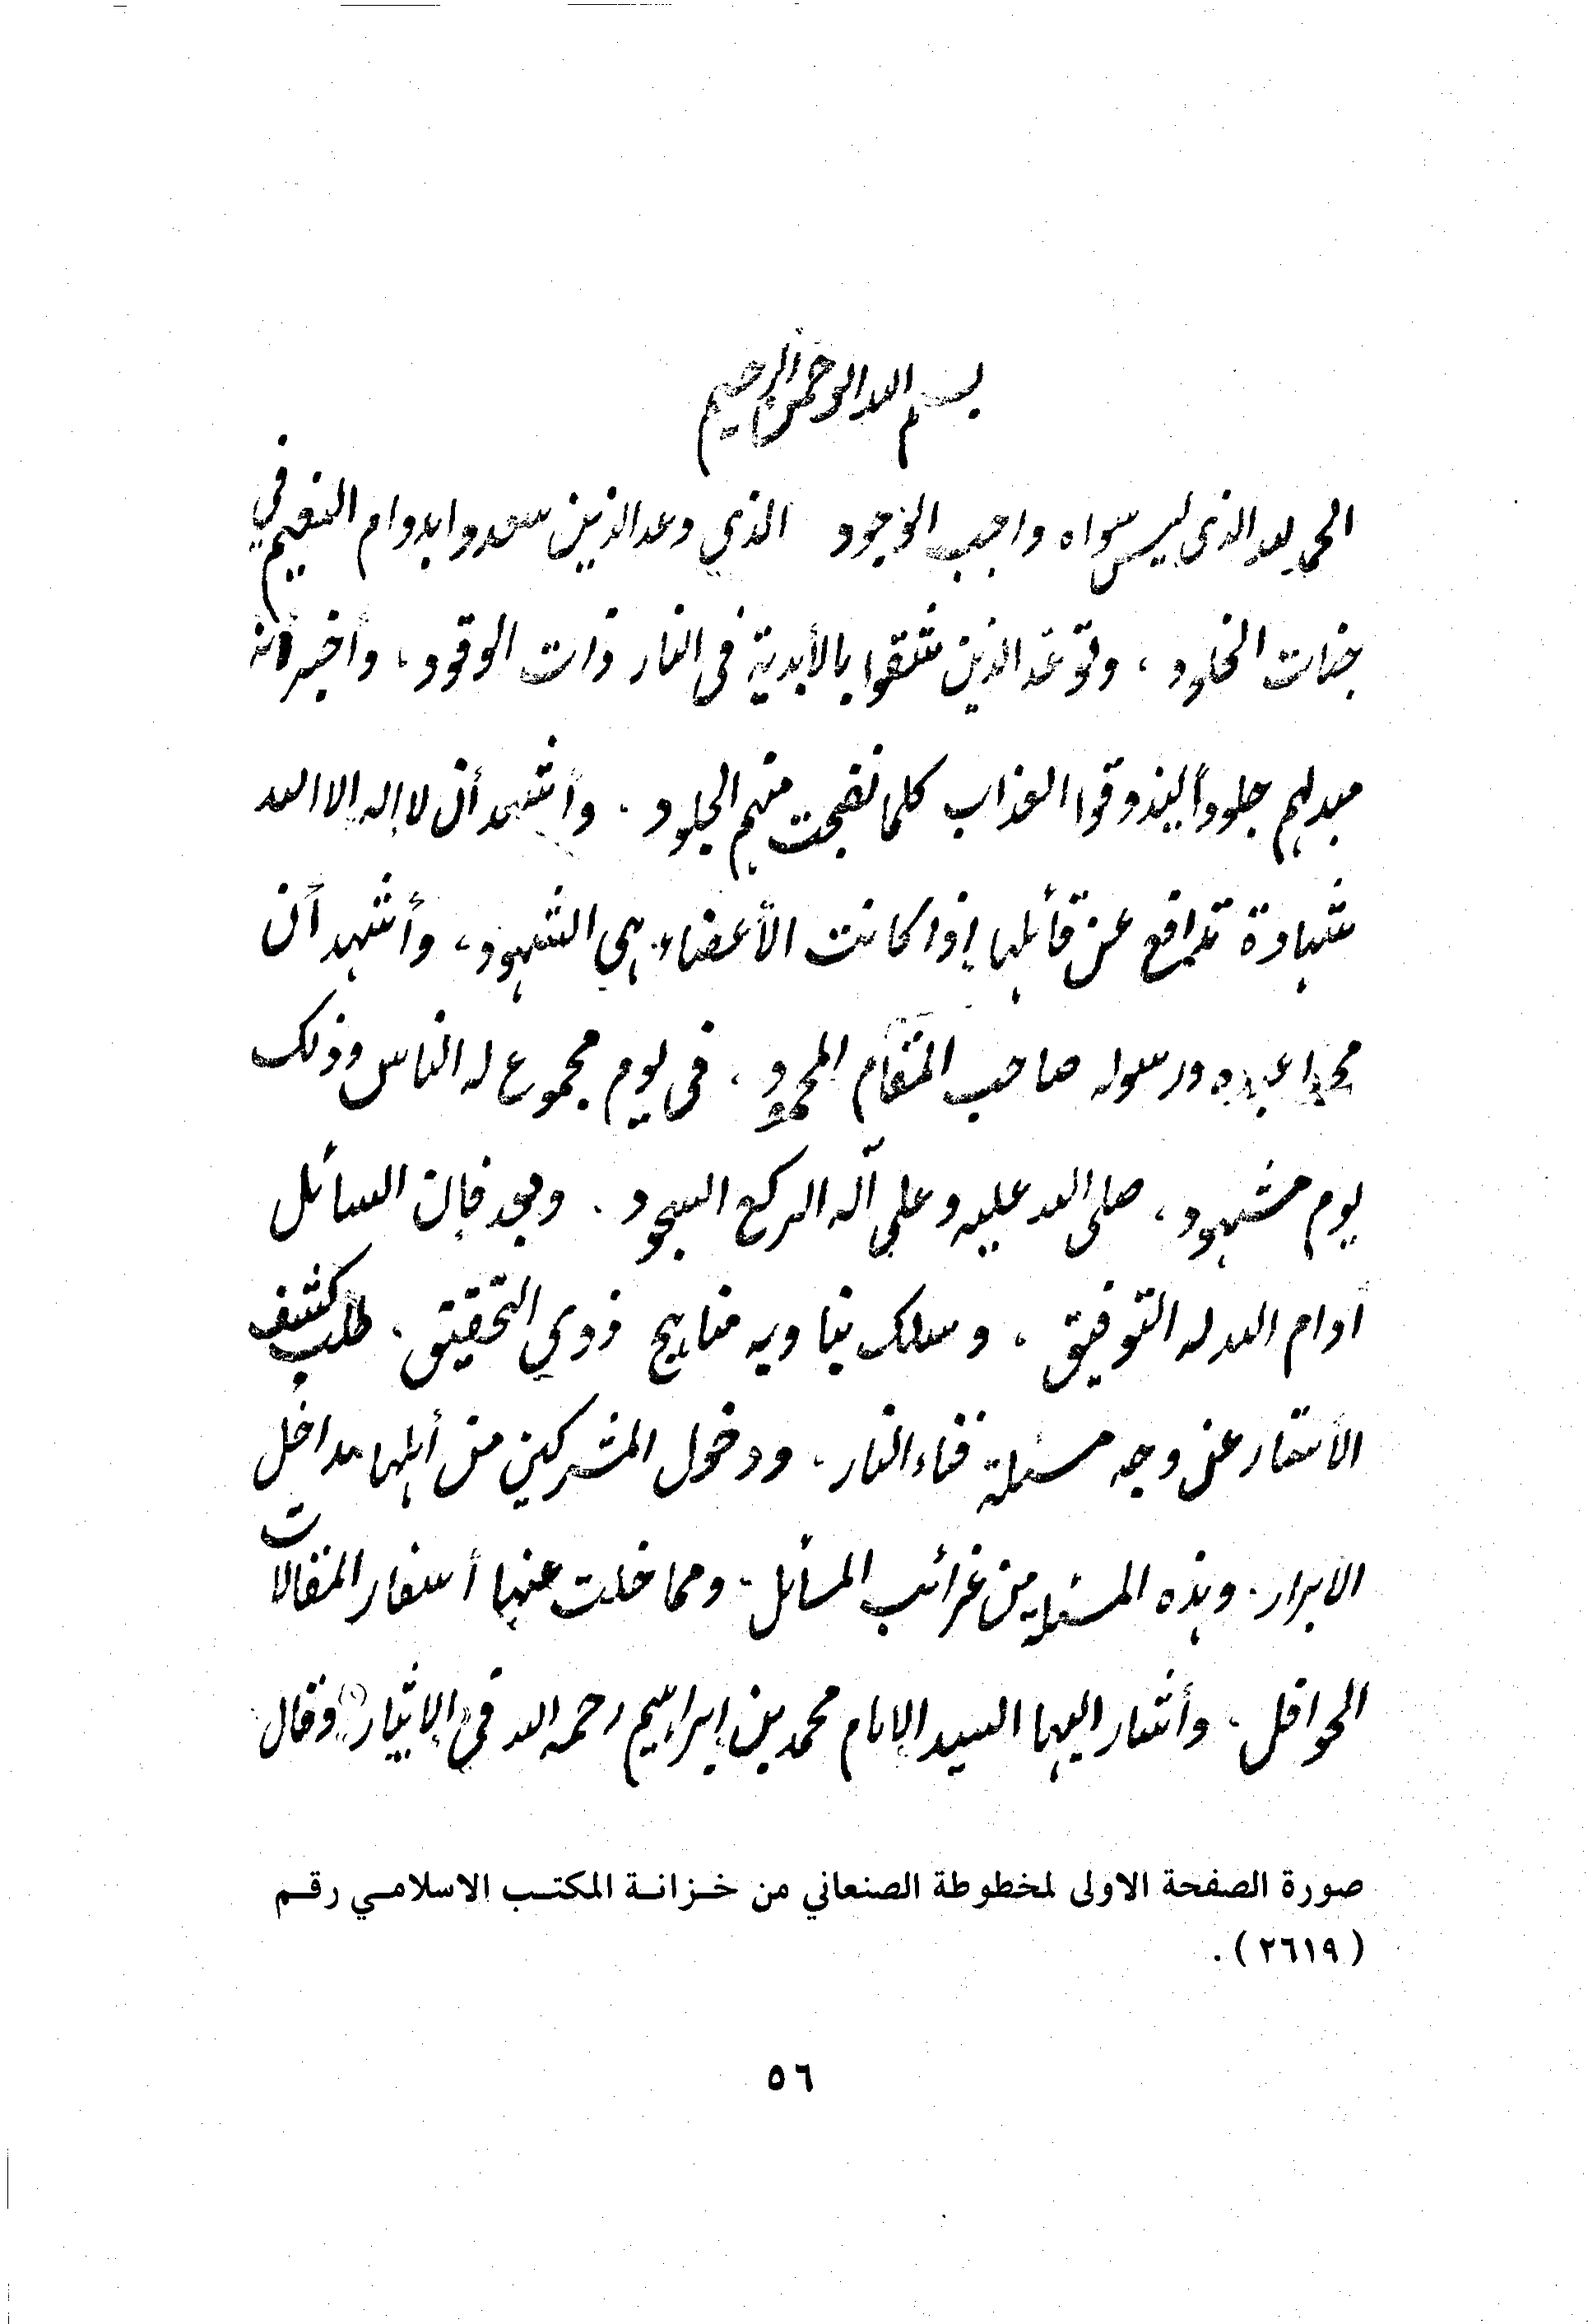 بسم الله الرحمن الرحيم
الحمد لله الذي ليس سواه واجب الوجود الذي وعد الذين سعدوا بدوام النعيم في
جنات الخلود، وتوعد الذين شقوا بالأبدية في النار ذات الوقود، وأخبر أنه
مبدلهم جلوداً ليذوقوا العذاب كلما نضجت منهم الجلود. وأشهد أن لا إله إلا الله
شهادة تدافع عن قائلها إذا كانت الأعضاء هي الشهود، وأشهد أن
محمدا عبده ورسوله صاحب المقام المحمود، في يوم مجموع له الناس وذلك
يوم مشهود، صلى الله عليه وعلى آله الركع السجود. وبعد فإن السائل
أدام الله له التوفيق، وسلك بنا وبه مناهج ذوي التحقيق، طلب كشف
الأستار عن وجه مسئلة فناء النار، ودخول المشركين من أهلها مداخل
الابرار. وهذه المسئلة من غرائب المسائل، ومما خلت عنها أسفار المقالات
الحوافل، وأشار إليها السيد الإمام محمد بن إبراهيم رحمه الله في الإيثار (١) وقال
صورة الصفحة الاولى لمخطوطة الصنعاني من خزانة المكتب الاسلامي رقم
(٢٦١٩).
٥٦